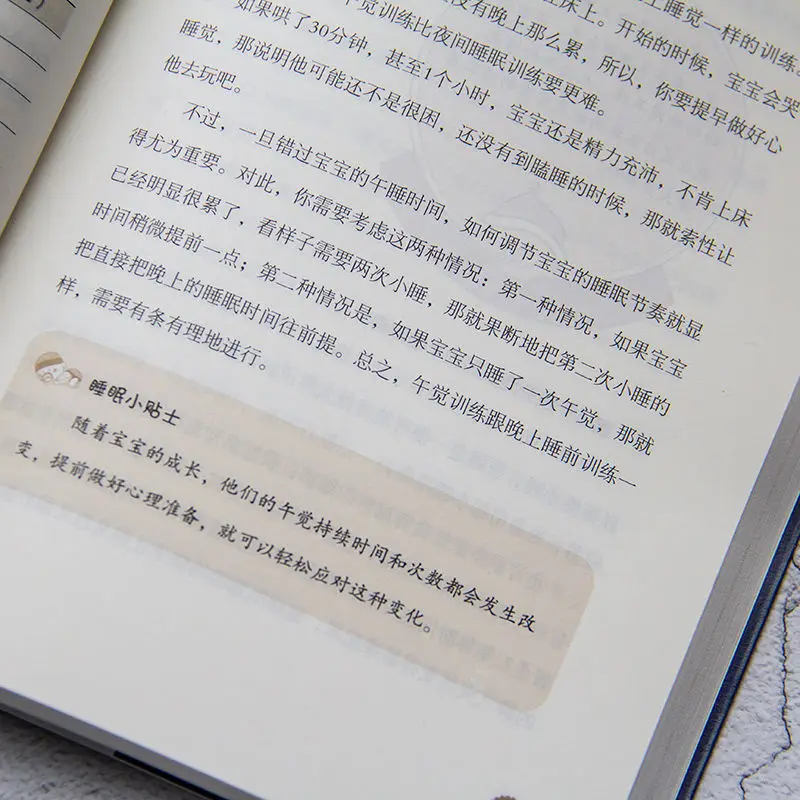 上睡觉一样的训练
床上。开始的时候，宝宝会哭
没有晚上那么累，所以，你要提早做好心
午觉训练比夜间睡眠训练要更难。
如果哄了30分钟，甚至1个小时，宝宝还是精力充沛，不肯上床
睡觉，那说明他可能还不是很困，还没有到瞌睡的时候，那就索性让
他去玩吧。
不过，一旦错过宝宝的午睡时间，如何调节宝宝的睡眠节奏就显
得尤为重要。对此，你需要考虑这两种情况：第一种情况，如果宝宝
已经明显很累了，看样子需要两次小睡，那就果断地把第二次小睡的
时间稍微提前一点；第二种情况是，如果宝宝只睡了一次午觉，那就
把直接把晚上的睡眠时间往前提。总之，午觉训练跟晚上睡前训练一
样，需要有条有理地进行。
睡眠小贴士
随着宝宝的成长，他们的午觉持续时间和次数都会发生改
变，提前做好心理准备，就可以轻松应对这种变化。